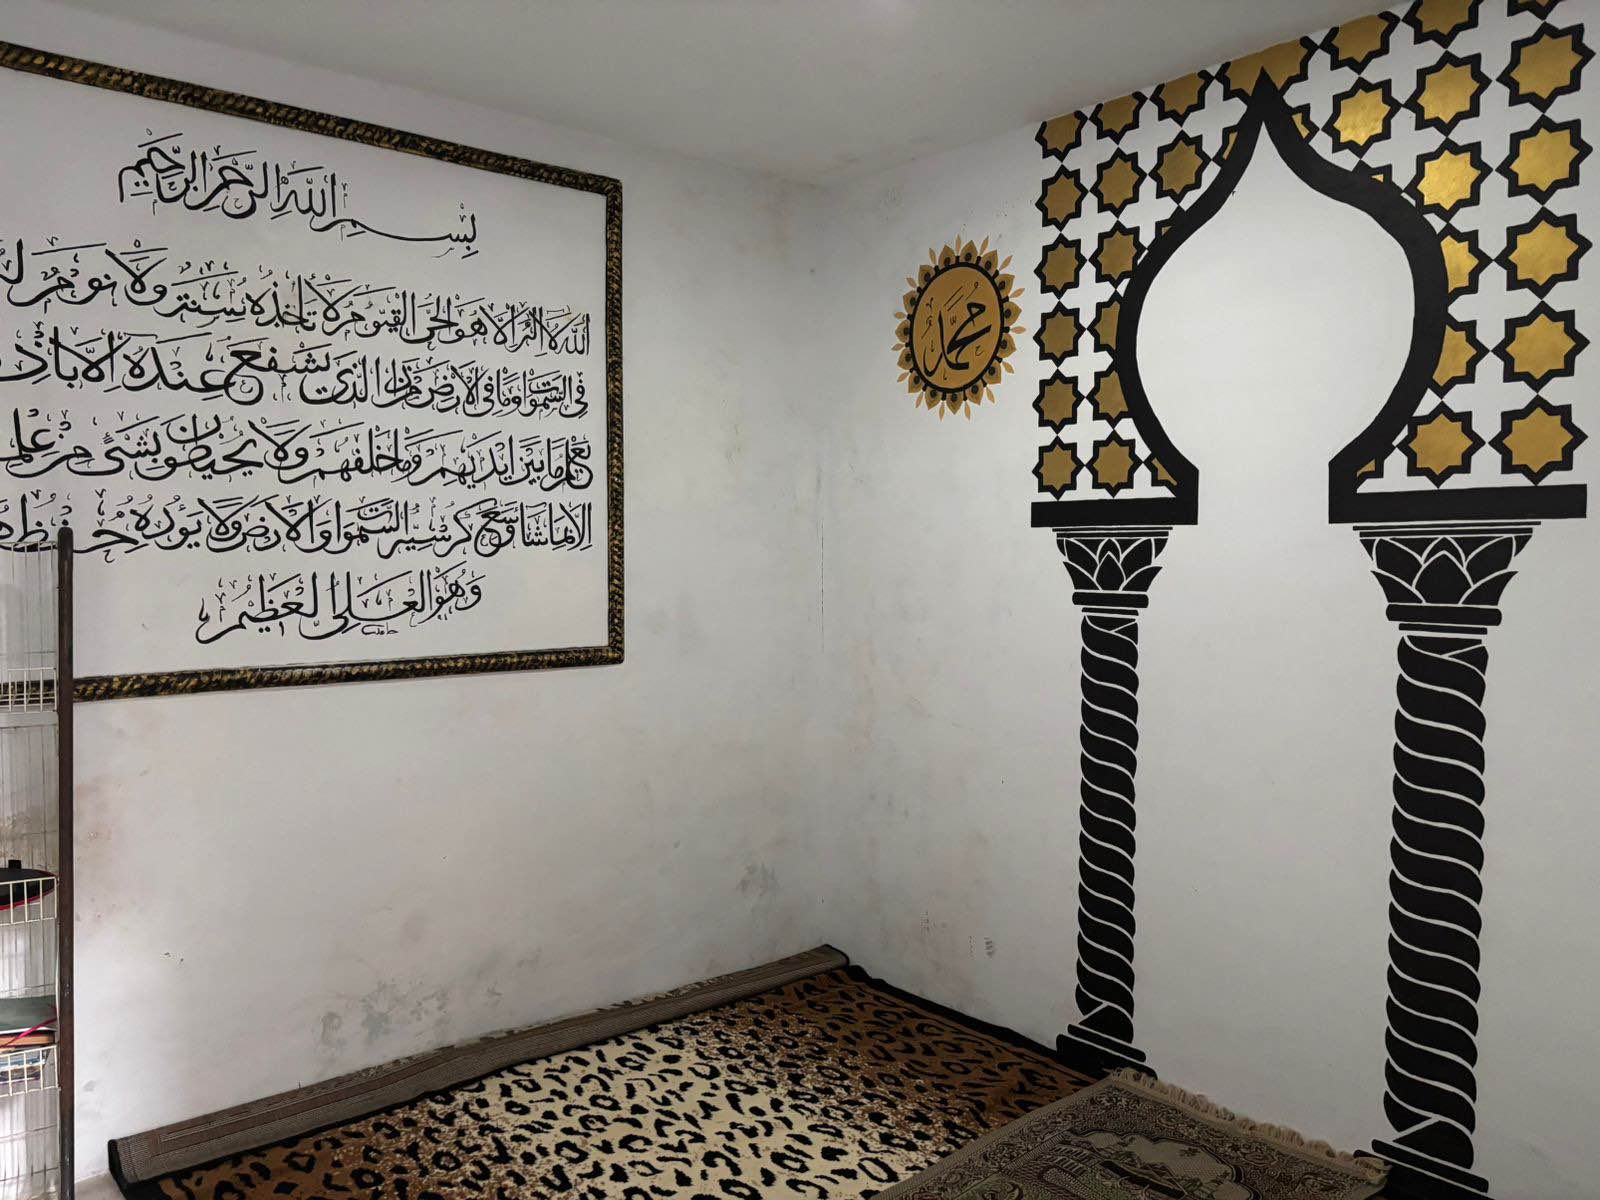 بِسْمِ اللهِ الرَّحْمٰنِ الرَّحِيْمِ
اَللهُ لَا اِلٰهَ اِلَّا هُوَ الْحَيُّ الْقَيُّوْمُ لَا تَأْخُذُهُ سِنَةٌ وَلَا نَوْمٌ
فِى السَّمٰوَاتِ وَمَا فِى الْاَرْضِ مَنْ ذَا الَّذِيْ يَشْفَعُ عِنْدَهُ اِلَّا
يَعْلَمُ مَا بَيْنَ اَيْدِيْهِمْ وَمَا خَلْفَهُمْ وَلَا يُحِيْطُوْنَ بِشَيْءٍ مِنْ
اِلَّا بِمَا شَاءَ وَسِعَ كُرْسِيُّهُ السَّمٰوَاتِ وَالْاَرْضَ وَلَا يَؤُدُهُ
وَهُوَ الْعَلِيُّ الْعَظِيْمُ
مُحَمَّد